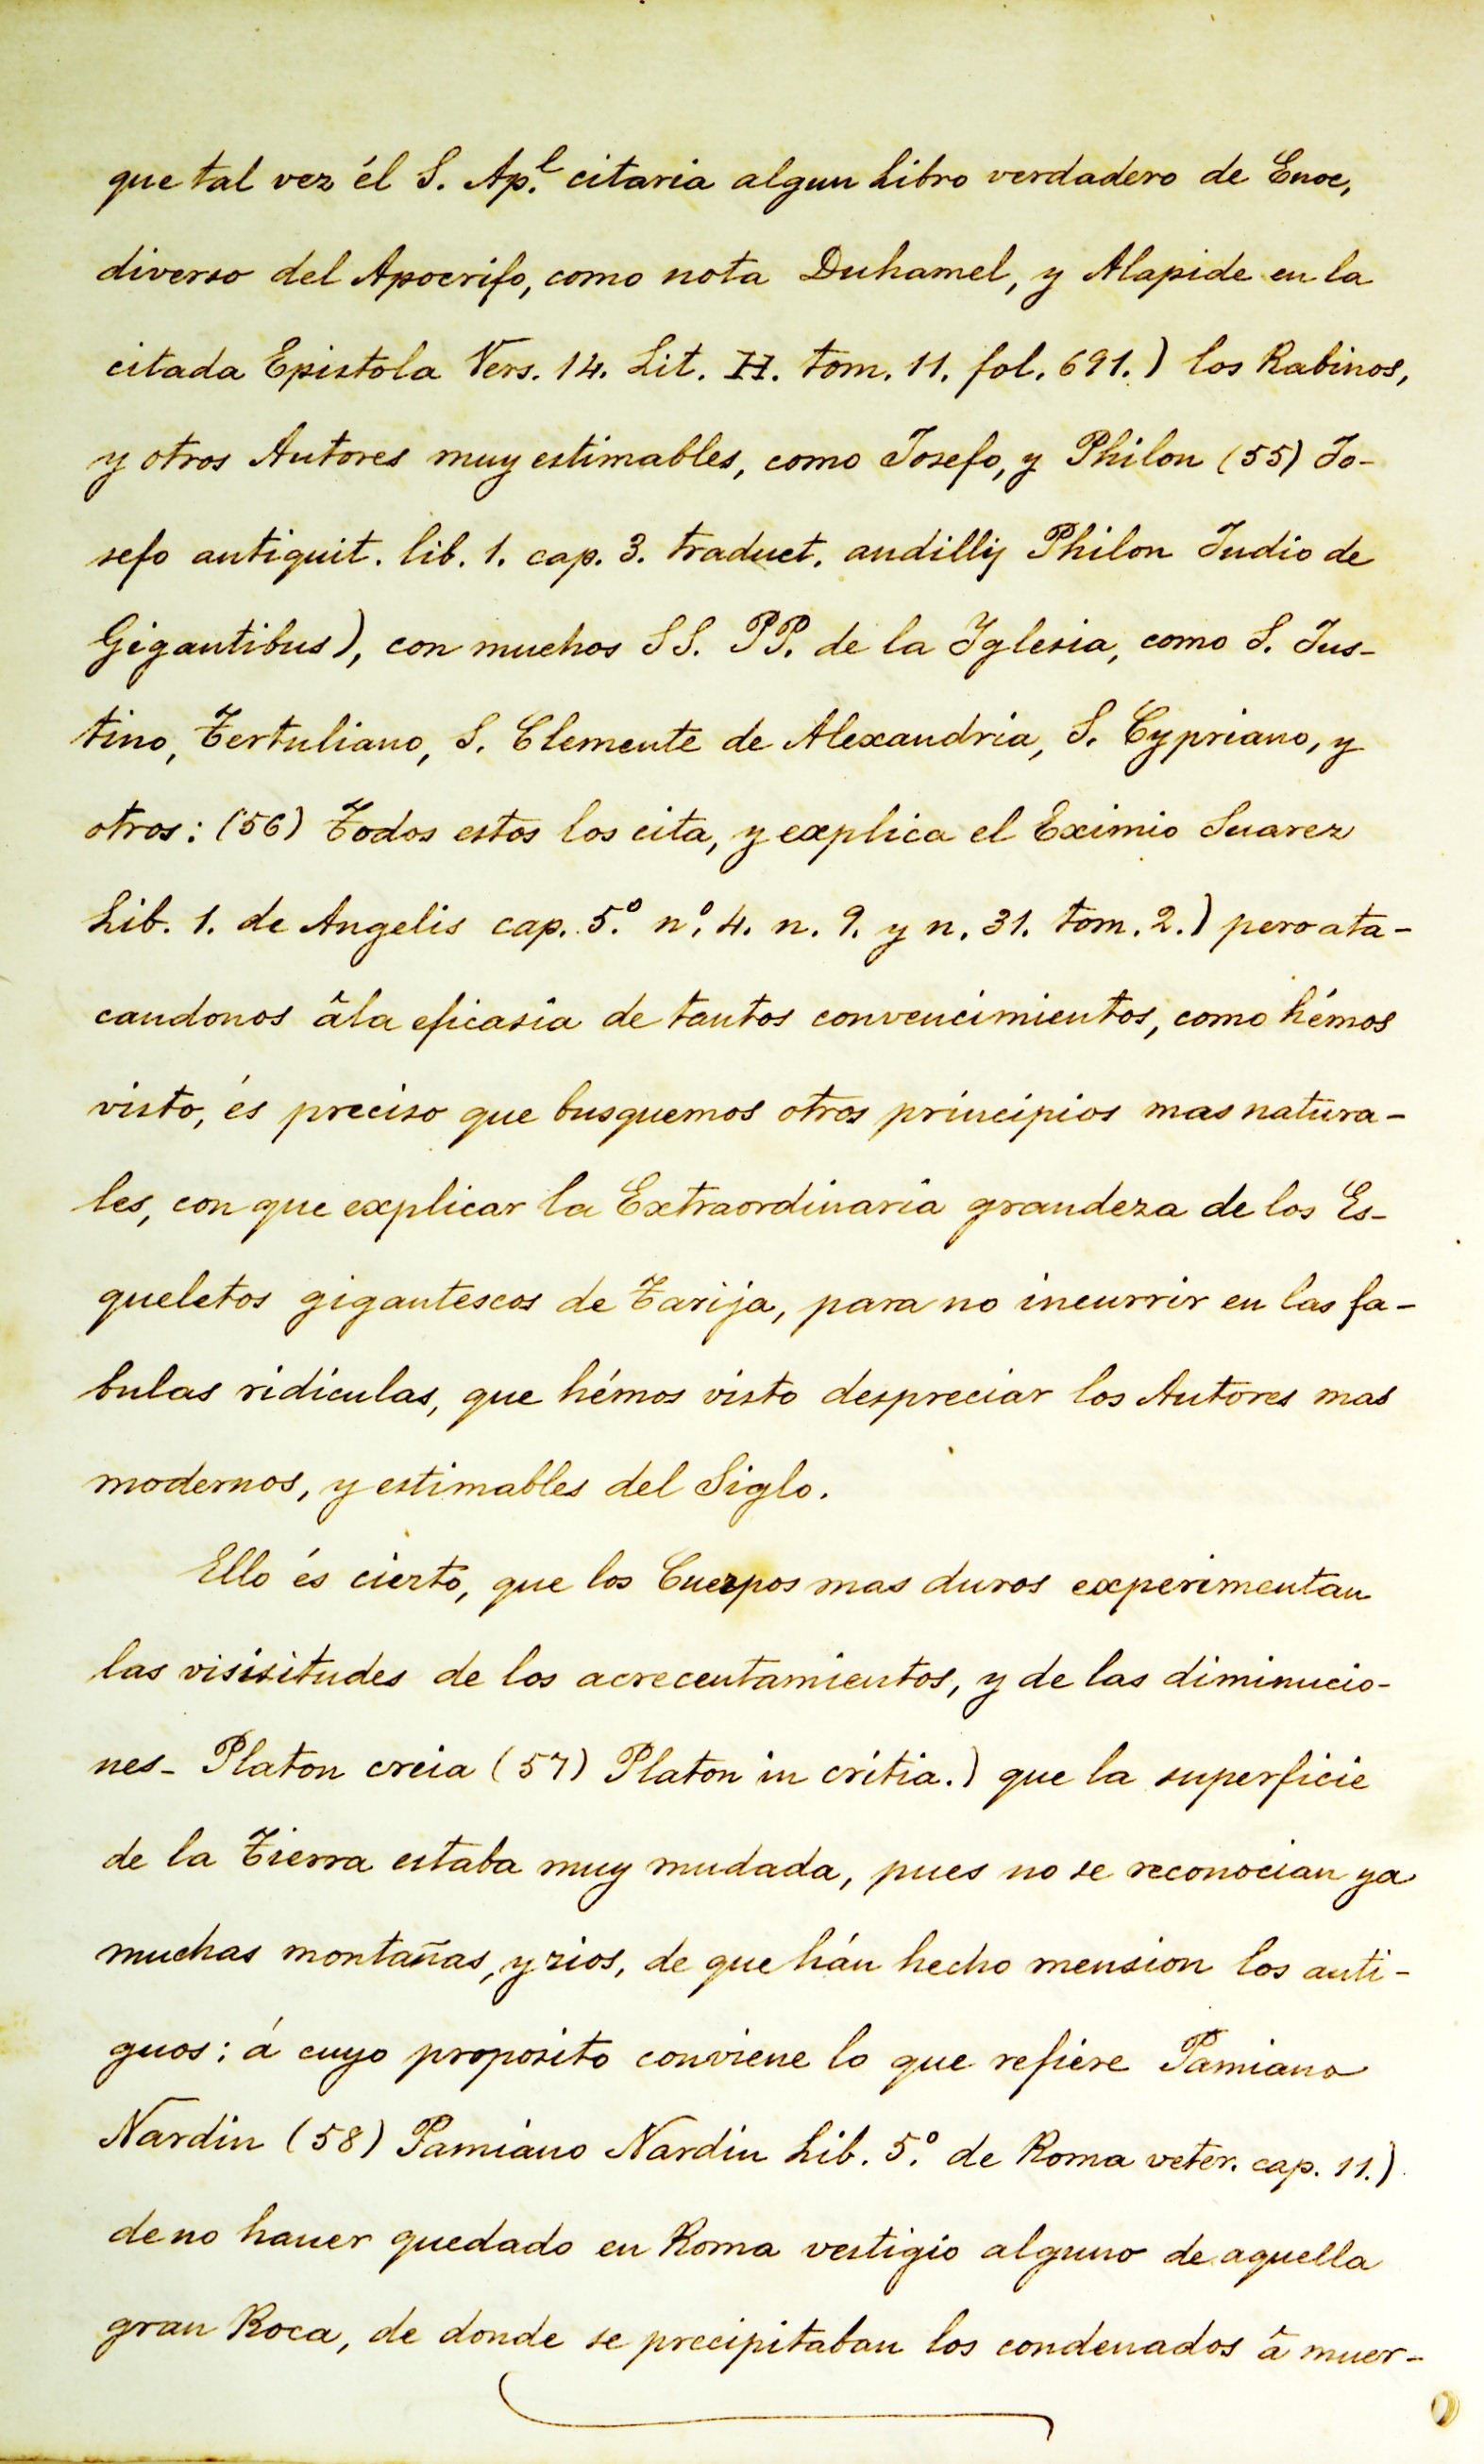 que tal vez él S. Ap.l citaria algun Libro verdadero de Enoc,
diverso del Apocrifo, como nota Duhamel, y Alapide en la
citada Epistola Vers. 14. Lit. H. tom. 11. fol. 691.) los Rabinos,
y otros Autores muy estimables, como Josefo, y Philon (55) Jo-
sefo antiquit. lib. 1. cap. 3. traduct. andilly Philon Judio de
Gigantibus), con muchos SS. PP. de la Iglesia, como S. Jus-
tino, Tertuliano, S. Clemente de Alexandria, S. Cypriano, y
otros: (56) Todos estos los cita, y explica el Eximio Suarez
Lib. 1. de Angelis cap. 5.º n.º 4. n. 9. y n. 31. tom. 2.) pero ata-
candonos âla eficasia de tantos convencimientos, como hémos
visto, és preciso que busquemos otros principios mas natura-
les, con que explicar la Extraordinaria grandeza de los Es-
queletos gigantescos de Tarija, para no incurrir en las fa-
bulas ridiculas, que hémos visto despreciar los Autores mas
modernos, y estimables del Siglo.
Ello és cierto, que los Cuerpos mas duros experimentan
las visisitudes de los acrecentamientos, y de las diminucio-
nes- Platon creia (57) Platon in critia.) que la superficie
de la Tierra estaba muy mudada, pues no se reconocian ya
muchas montañas, y rios, de que hán hecho mension los anti-
guos: á cuyo proposito conviene lo que refiere Pamiano
Nardin (58) Pamiano Nardin Lib. 5.º de Roma veter. cap. 11.)
de no hauer quedado en Roma vestigio alguno de aquella
gran Roca, de donde se precipitaban los condenados â muer-